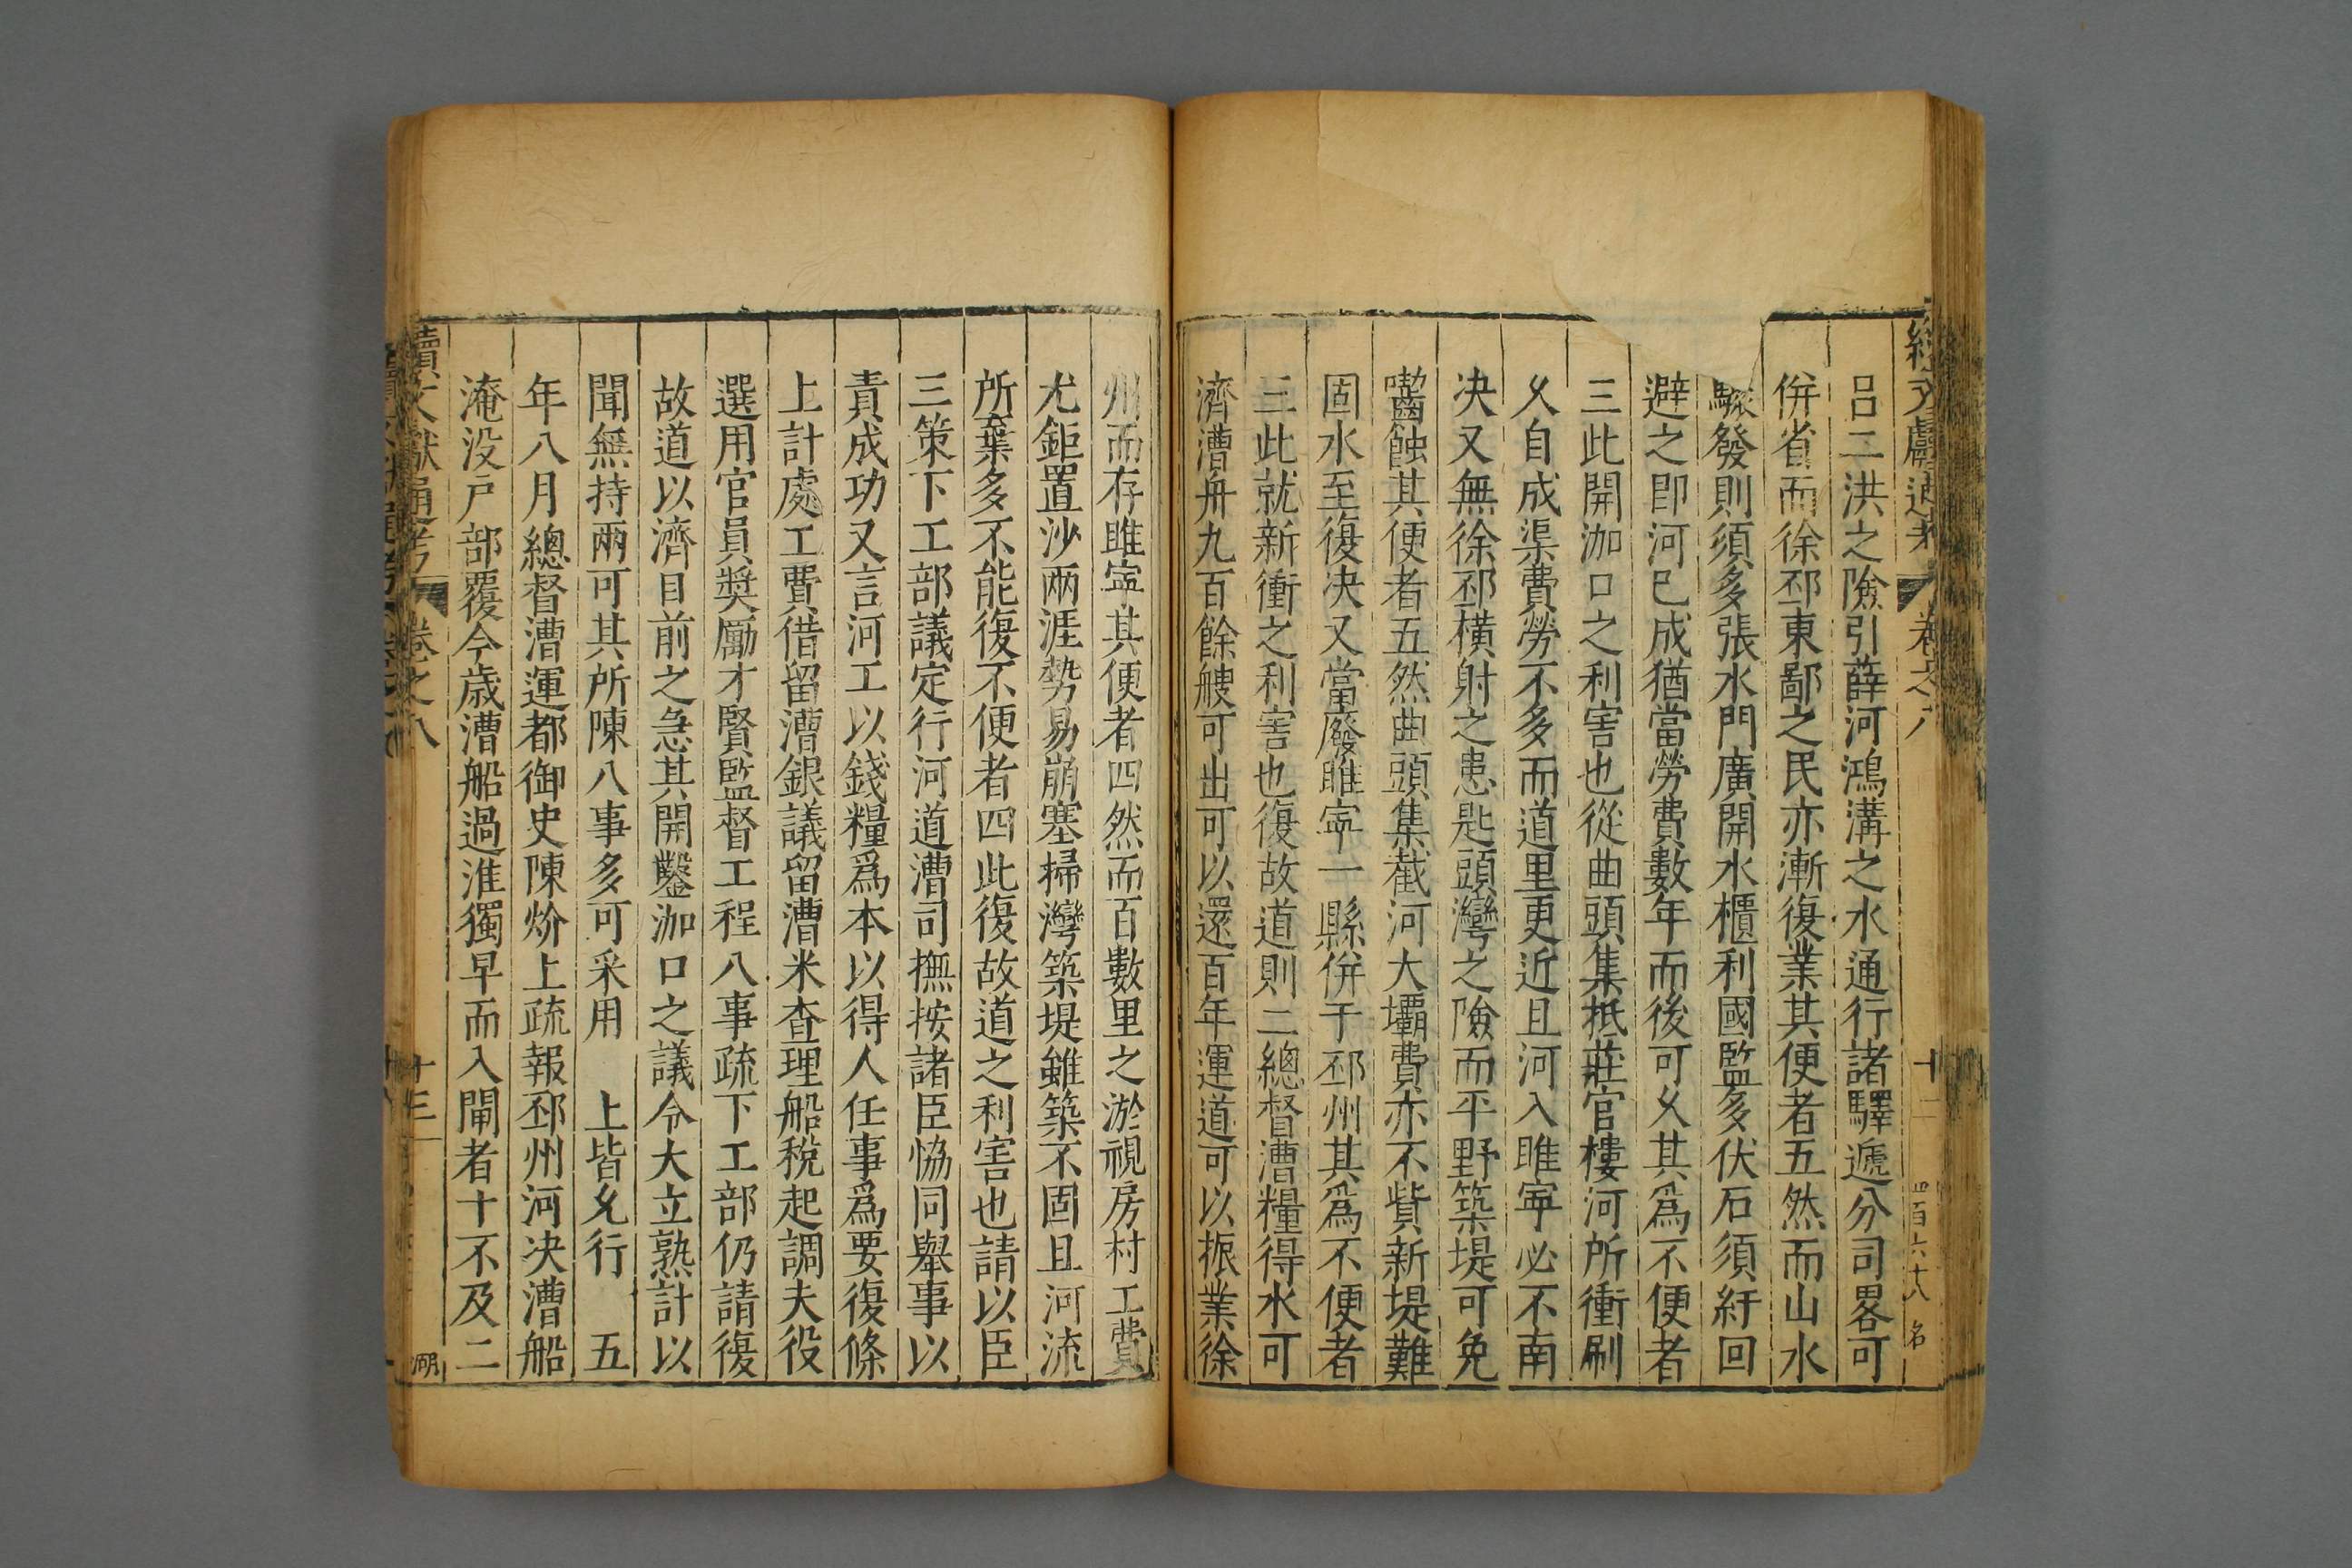 續文獻通考 卷之八 十二 四百六十八 名
呂二洪之險引薛河鴻溝之水通行諸驛遞分司畧可
併省而徐邳東鄙之民亦漸復業其便者五然而山水
驟發則須多張水門廣開水櫃利國監多伏石須紆回
避之卽河已成猶當勞費數年而後可乆其爲不便者
三此開泇口之利害也從曲頭集抵莊官樓河所衝刷
乆自成渠費勞不多而道里更近且河入睢寧必不南
决又無徐邳橫射之患匙頭灣之險而平野築堤可免
囓蝕其便者五然曲頭集截河大壩費亦不貲新堤難
固水至復决又當廢睢寧一縣併于邳州其爲不便者
三此就新衝之利害也復故道則二總督漕糧得水可
濟漕舟九百餘艘可出可以還百年運道可以振業徐
州而存睢寧其便者四然而百數里之淤視房村工費
尤鉅置沙兩涯勢易崩塞掃灣築堤雖築不固且河流
所棄多不能復不便者四此復故道之利害也請以臣
三策下工部議定行河道漕司撫按諸臣恊同舉事以
責成功又言河工以錢糧爲本以得人任事爲要復條
上計處工費借留漕銀議留漕米查理船稅起調夫役
選用官員奬勵才賢監督工程八事疏下工部仍請復
故道以濟目前之急其開鑿泇口之議令大立熟計以
聞無持兩可其所陳八事多可采用　上皆允行　五
年八月總督漕運都御史陳炌上疏報邳州河决漕船
淹没戸部覆今歲漕船過淮獨早而入閘者十不及二
續文獻通考 卷之八 十三